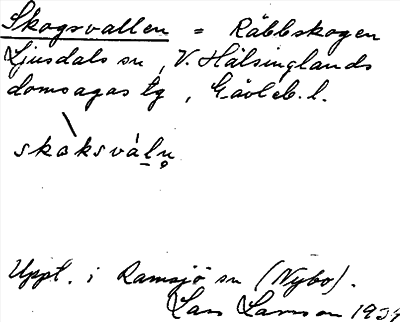 Skogsvallen = Räbbskogen
Ljusdals sn, V. Hälsinglands
domsagas tg, Gävleb. l.
skòksválṇ
Uppl. i Ramsjö sn (Nybo).
Lars Larsson 1934